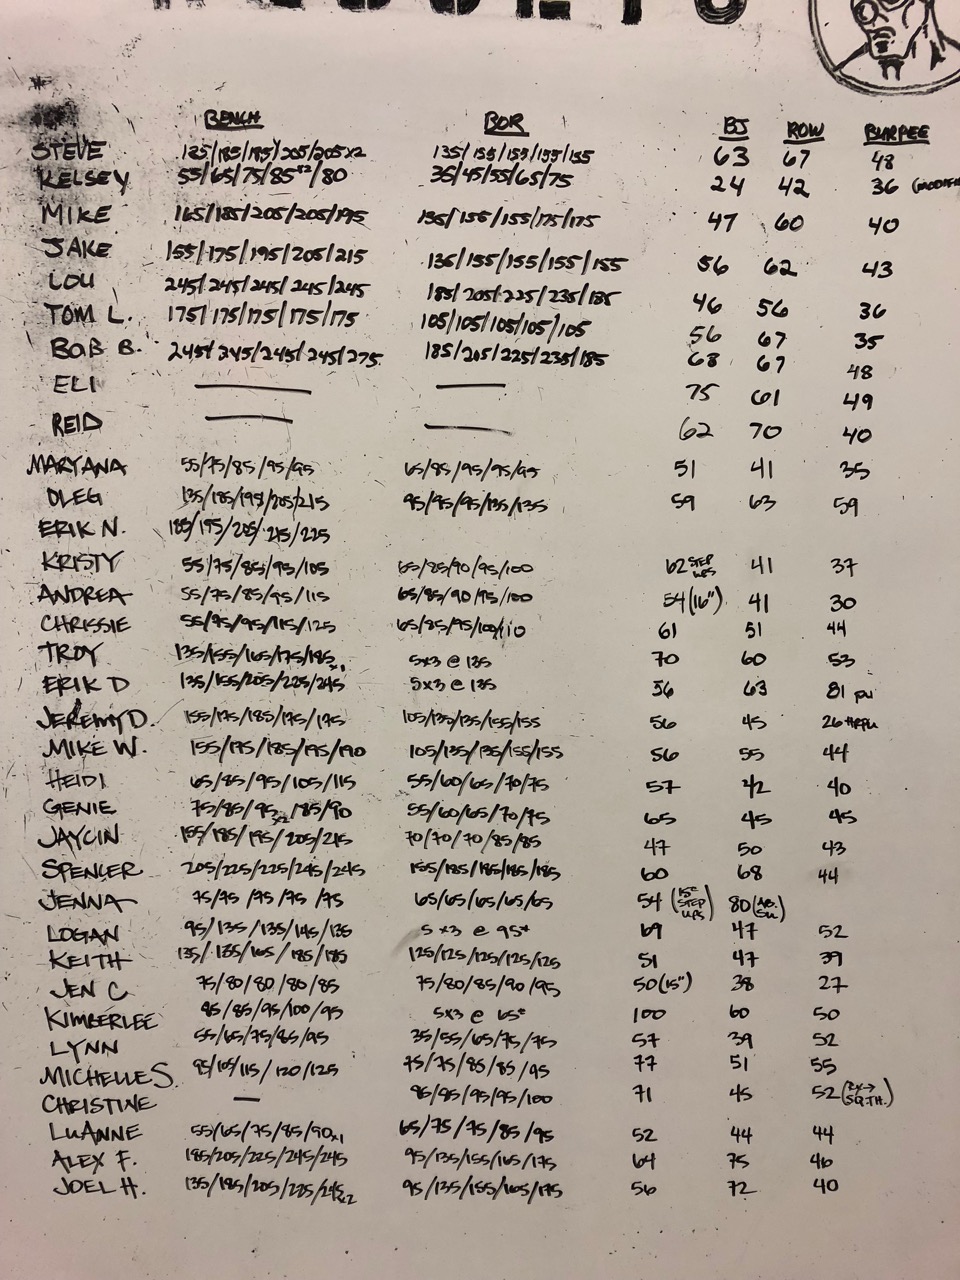 BENCH BOR BJ ROW BURPEE
STEVE 135/185/195/205/205x2 135/155/155/155/155 63 67 48
KELSEY 55/65/75/85x2/80 35/45/55/65/75 24 42 36
MIKE 165/185/205/205/195 135/155/155/175/175 47 60 40
JAKE 155/175/195/205/215 135/155/155/155/155 56 62 43
LOU 245/245/245/245/245 185/205/225/235/185 46 56 36
TOM L. 175/175/175/175/175 105/105/105/105/105 56 67 35
BOB B. 245/245/245/245/275 185/205/225/235/185 68 67 48
ELI — — 75 61 49
REID — — 62 70 40
MARYANA 55/75/85/95/95 65/85/95/95/95 51 41 35
OLEG 135/185/195/205/215 95/95/95/135/135 59 63 59
ERIK N. 185/195/205/215/225
KRISTY 55/75/85/95/105 65/85/90/95/100 62 STEP UPS 41 37
ANDREA 55/75/85/95/115 65/85/90/95/100 54 (16") 41 30
CHRISSIE 55/75/95/115/125 65/85/95/100/110 61 51 44
TROY 135/155/165/175/185x1 5x3 @ 135 70 60 53
ERIK D 135/155/205/225/245 5x3 @ 135 56 63 81 pu
JEREMY D. 155/175/185/175/175 105/135/135/155/155 56 45 26
MIKE W. 155/175/185/195/190 105/135/135/155/155 56 55 44
HEIDI 65/85/95/105/115 55/60/65/70/75 57 42 40
GENIE 75/85/95x2/85/90 55/60/65/70/75 65 45 45
JAYCIN 155/185/195/205/215 70/70/70/85/85 47 50 43
SPENCER 205/225/225/245/245 155/185/185/185/185 60 68 44
JENNA 75/75/75/75/75 65/65/65/65/65 54 (15" STEP UPS) 80
LOGAN 95/135/135/145/135 5x3 @ 95# 69 47 52
KEITH 135/155/165/185/185 125/125/125/125/125 51 47 39
JEN C 75/80/80/80/85 75/80/85/90/95 50 (15") 38 27
KIMBERLEE 85/85/95/100/95 5x3 @ 65# 100 60 50
LYNN 55/65/75/85/95 35/55/65/75/75 57 39 52
MICHELLE S. 95/105/115/120/125 75/75/85/85/95 77 51 55
CHRISTINE — 85/85/95/95/100 71 45 52 SQ.TH.)
LUANNE 55/65/75/85/90x1 65/75/75/85/95 52 44 44
ALEX F. 185/205/225/245/245 95/135/155/165/175 64 75 46
JOEL H. 135/185/205/225/245x2 95/135/155/165/175 56 72 40